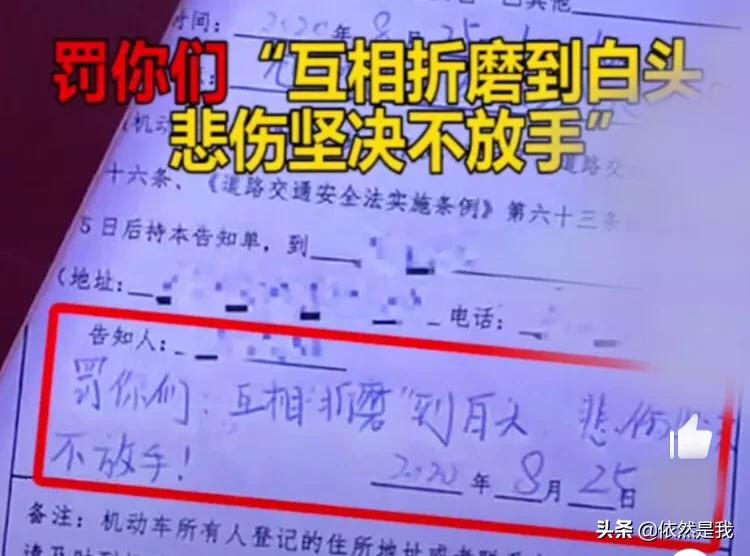 其他
时间：2020年8月25
罚你们“互相折磨到白头
悲伤坚决不放手”
（机动
十六条、《道路交通安全法实施条例》第六十三条
5日后持本告知单，到
（地址： 电话：
告知人：
罚你们：互相“折磨”到白头 悲伤坚决
不放手！
2020年8月25日
备注：机动车所有人登记的住所地址或者联系
请及时到机
头条 @依然是我